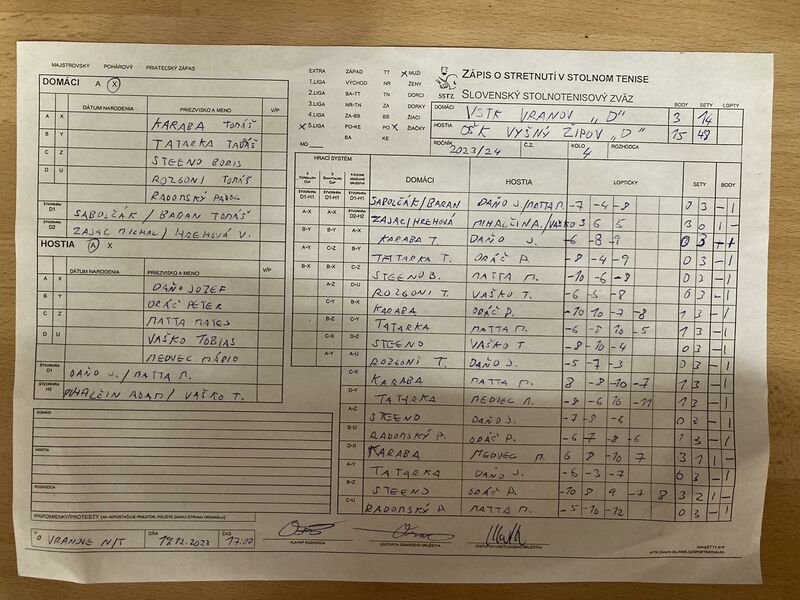 MAJSTROVSKÝ POHÁROVÝ PRIATEĽSKÝ ZÁPAS
DOMÁCI A X
DÁTUM NARODENIA PRIEZVISKO A MENO V/P
A X KARABA TOMÁŠ
B Y TATARKA TADÁŠ
C Z STEENO BORIS
D U ROZGONI TOMÁŠ
RADONSKÝ
ŠTVORHRA D1 SABOLČÁK / BARAN TOMÁŠ
ŠTVORHRA D2 ZAJAC MICHAL / HREHOVÁ V.
HOSTIA A X
DÁTUM NARODENIA PRIEZVISKO A MENO V/P
A X DAŇO JOZEF
B Y ORÁČ PETER
C Z MATTA MATEJ
D U VAŠKO TOBIAS
MEDVEC MÁRIO
ŠTVORHRA D1 DAŇO J. / MATTA M.
ŠTVORHRA H2 MIHALČIN ADAM / VAŠKO T.
DOMÁCI
HOSTIA
ROZHODCA
PRIPOMIENKY/PROTESTY (AK NEPOSTAČUJE PRIESTOR, POUŽITE ZADNÚ STRANU ORIGINÁLU)
V VRANOVE N/T DŇA 17.12.2023 ČAS 17:00
HLAVNÝ ROZHODCA ZÁSTUPCA DOMÁCEHO DRUŽSTVA ZÁSTUPCA HOSŤUJÚCEHO DRUŽSTVA
EXTRA ZÁPAD TT X MUŽI
1.LIGA VÝCHOD NR ŽENY
2.LIGA BA-TT TN DORCI
3.LIGA NR-TN ZA DORKY
4.LIGA ZA-BB BB ŽIACI
X 5.LIGA PO-KE PO X ŽIAČKY
MO BA KE
ZÁPIS O STRETNUTÍ V STOLNOM TENISE
SSTZ SLOVENSKÝ STOLNOTENISOVÝ ZVÄZ
DOMÁCI VSTK VRANOV "D" BODY 3 SETY 14 LOPTY
HOSTIA OŠK VYŠNÝ ŽIPOV "D" 15 48
ROČNÍK 2023/24 Č.Z. KOLO 4 ROZHODCA
HRACÍ SYSTÉM DOMÁCI HOSTIA LOPTIČKY SETY BODY
SABOLČÁK / BARAN DAŇO J. / MATTA M. -7 -4 -8 0 3 -1
ZAJAC / HREHOVÁ MIHALČIN A. / VAŠKO 3 6 5 3 0 1 -
KARABA T. DAŇO J. -6 -8 -9 0 3
TATARKA T. ORÁČ P. -8 -4 -9 0 3 -1
STEENO B. MATTA M. -10 -6 -8 0 3 -1
ROZGONI T. VAŠKO T. -6 -5 -8 0 3 -1
KARABA ORÁČ P. -10 10 -7 -8 1 3 -1
TATARKA MATTA M. -6 -5 10 -5 1 3 -1
STEENO VAŠKO T. -8 -10 -4 0 3 -1
ROZGONI T. DAŇO J. -5 -7 -3 0 3 -1
KARABA MATTA M. 8 -8 -10 -7 1 3 -1
TATARKA MEDVEC M. -8 -6 10 -11 1 3 -1
STEENO DAŇO J. -7 -8 -6 0 3 -1
RADONSKÝ P. ORÁČ P. -6 7 -8 -6 1 3 -1
KARABA MEDVEC M. 6 8 -10 7 3 1 1 -
TATARKA DAŇO J. -6 -3 -7 0 3 -1
STEENO ORÁČ P. -10 8 9 -7 8 3 2 1 -
RADONSKÝ P. MATTA M. -5 -10 -12 0 3 -1